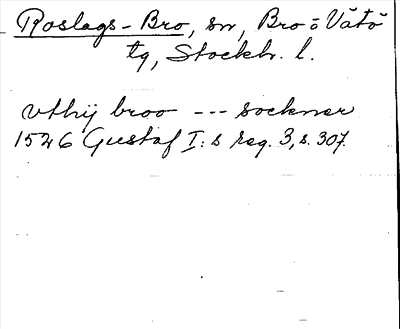 Roslags-Bro, sn, Bro o Vätö
tg, Stockh. l.
vthij broo --- sockner
1526 Gustaf I:s reg. 3, s. 307.